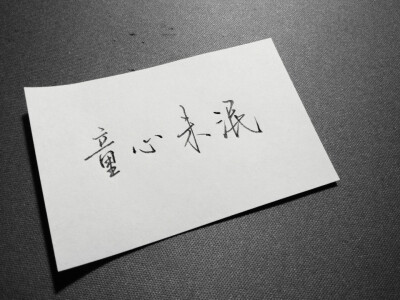 童心未泯